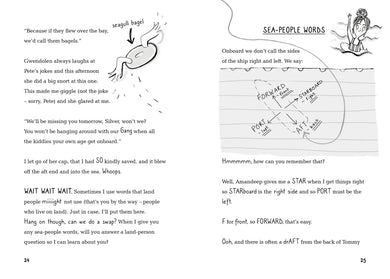 "Because if they flew over the bay,
we'd call them bagels."
seagull bagel
Gwendolen always laughs at
Pete's jokes and this afternoon
she did a big snort at this one.
This made me giggle (not the joke
– sorry, Pete) and she glared at me.
"We'll be missing you tomorrow, Silver, won't we?
You won't be hanging around with our Gang when all
the kiddies your own age get onboard."
I let go of her cap, that I had SO kindly saved, and it blew
off the aft end and into the sea. Whoops.
WAIT WAIT WAIT. Sometimes I use words that land
people miiiight not use (that's you by the way – people
who live on land). Just in case, I'll put them here.
Hang on though, can we do a swap? When I give you
any sea-people words, will you answer a land-person
question so I can learn about you?
24
SEA-PEOPLE WORDS
Onboard we don't call the sides
of the ship right and left. We say:
FORWARD
STARBOARD
right
PORT
left
AFT
back
Hmmmmmm, how can you remember that?
Well, Amandeep gives me a STAR when I get things right
so STARboard is the right side and so PORT must be the
left.
F for front, so FORWARD, that's easy.
Ooh, and there is often a drAFT from the back of Tommy
25